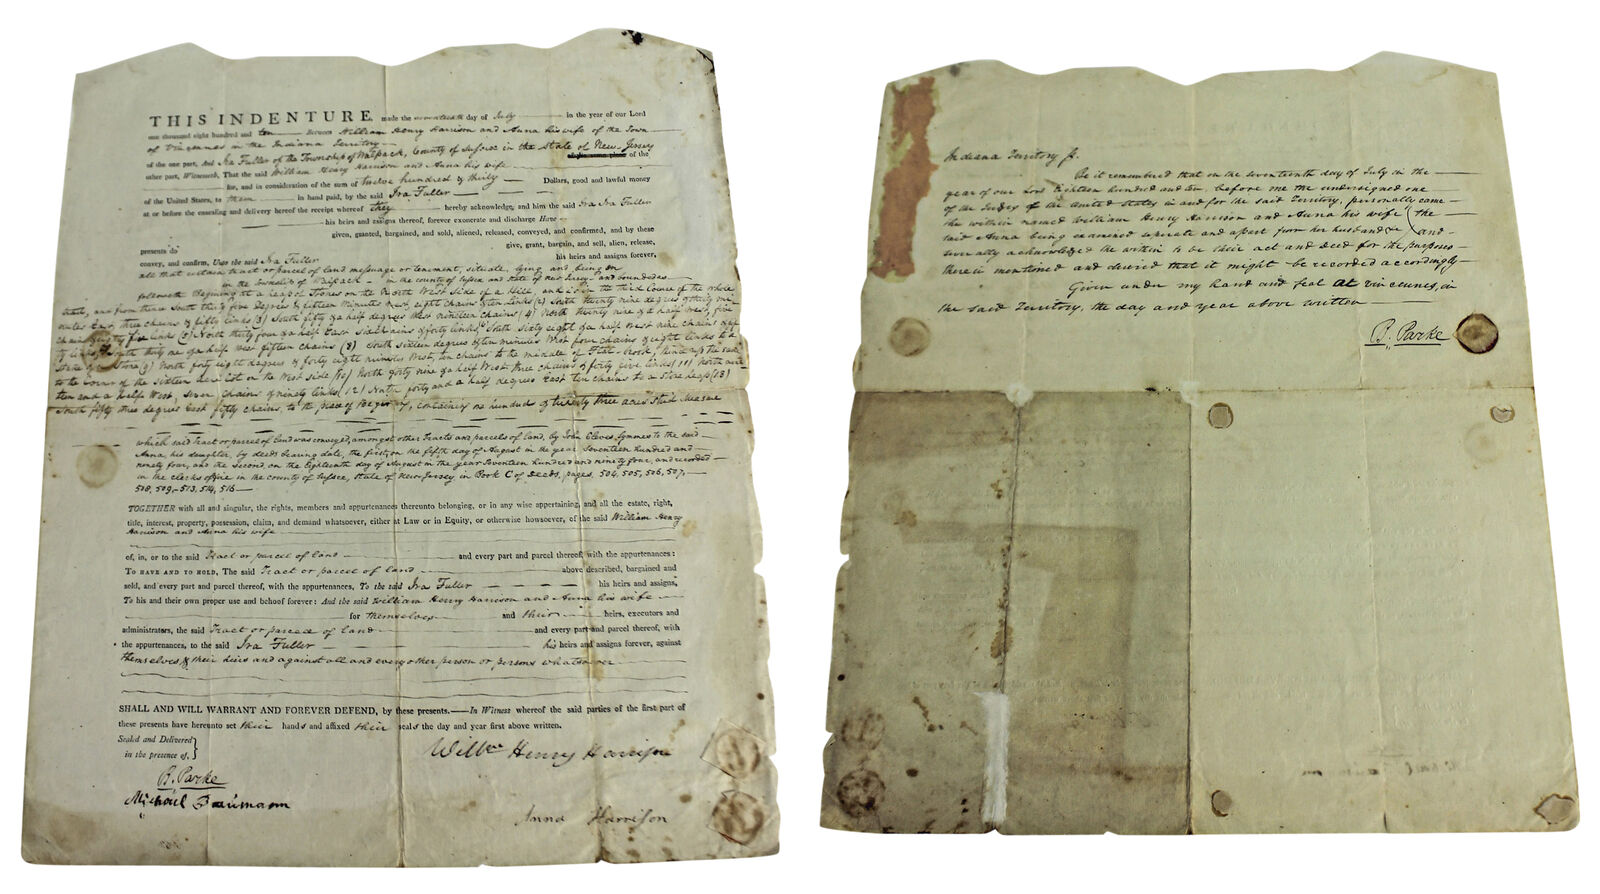 THIS INDENTURE, made the seventeenth day of July in the year of our Lord
one thousand eight hundred and ten Between William Henry Harrison and Anna his wife of the Town
of Vincennes in the Indiana Territory
of the one part, And Ira Fuller of the Township of Walpack, County of Sussex in the State of New-Jersey
of the
other part, Witnesseth, That the said William Henry Harrison and Anna his wife
for, and in consideration of the sum of twelve hundred & thirty Dollars, good and lawful money
of the United States, to them in hand paid, by the said Ira Fuller
at or before the ensealing and delivery hereof the receipt whereof they hereby acknowledge, and him the said Ira Fuller
his heirs and assigns thereof, forever exonerate and discharge Have
given, granted, bargained, and sold, aliened, released, conveyed, and confirmed, and by these
presents do give, grant, bargain, and sell, alien, release,
convey, and confirm, Unto the said Ira Fuller his heirs and assigns forever,
all that certain tract or parcel of land messuage or tenement, situate, lying and being on
in the Township of Walpack in the county of Sussex and state of New Jersey and bounded as
followeth Beginning at a heap of Stones on the North West side of a Hill, and is in the third Course of the whole
tract, and from thence South thirty five Degrees & fifteen Minutes West eight chains & ten Links (2) South twenty nine degrees & thirty mi
nutes East, three chains & fifty links (3) South fifty & a half degrees West nineteen chains (4) North twenty nine & a half West, five
chains & sixty five links (5) North thirty four & a half East six chains & forty links, South sixty eight & a half West nine chains &
ty links, South thirty & a half West fifteen chains (8) South sixteen degrees & ten minutes West four chains & eight links to a
Stake & Stone (9) North forty eight degrees & forty eight minutes West, ten chains to the middle of Flat-brook, thence up the same
to the corner of the sixteen acre lot on the West side (10) North forty nine & a half West three chains & forty five links (11) North
ten and a half West, seven chains & ninety links (12) North forty and a half degrees East ten chains to a stone heap (13)
South fifty three degrees East fifty chains, to the place of Beginning, containing one hundred & twenty three acres Strict Measure
which said tract or parcel of land was conveyed, amongst other Tracts and parcels of land, by John Cleves Symmes to the said
Anna, his daughter, by deeds bearing date, the first, on the fifth day of August in the year Seventeen hundred and
ninety four, and the Second, on the Eighteenth day of August in the year Seventeen hundred and ninety four, and recorded
in the clerks office in the county of Sussex, State of New Jersey in Book C of Deeds, pages, 504, 505, 506, 507,
508, 509, 513, 514, 516
TOGETHER with all and singular, the rights, members and appurtenances thereunto belonging, or in any wise appertaining, and all the estate, right,
title, interest, property, possession, claim, and demand whatsoever, either at Law or in Equity, or otherwise howsoever, of the said William Henry
Harrison and Anna his wife
of, in, or to the said Tract or parcel of land and every part and parcel thereof, with the appurtenances:
To HAVE AND TO HOLD, The said Tract or parcel of land above described, bargained and
sold, and every part and parcel thereof, with the appurtenances, To the said Ira Fuller his heirs and assigns,
To his and their own proper use and behoof forever: And the said William Henry Harrison and Anna his wife
for themselves and their heirs, executors and
administrators, the said Tract or parcel of land and every part and parcel thereof, with
the appurtenances, to the said Ira Fuller his heirs and assigns forever, against
themselves, & their heirs and against all and every other person or persons whatsoever
SHALL AND WILL WARRANT AND FOREVER DEFEND, by these presents.—In Witness whereof the said parties of the first part of
these presents have hereunto set their hands and affixed their seals the day and year first above written.
Sealed and Delivered
in the presence of,
Willm Henry Harrison
B. Parke
Michael Baumann
Anna Harrison
Indiana Territory ss.
Be it remembered that on the seventeenth day of July in the
year of our Lord Eighteen hundred and ten, before me the undersigned one
of the Judges of the United States in and for the said Territory, personally came
the within named William Henry Harrison and Anna his wife (the
said Anna being examined seperate and apart from her husband) and
severally acknowledged the within to be their act and deed for the purposes
therein mentioned and desired that it might be recorded accordingly
Given under my hand and seal at Vincennes, in
the said Territory, the day and year above written
B. Parke